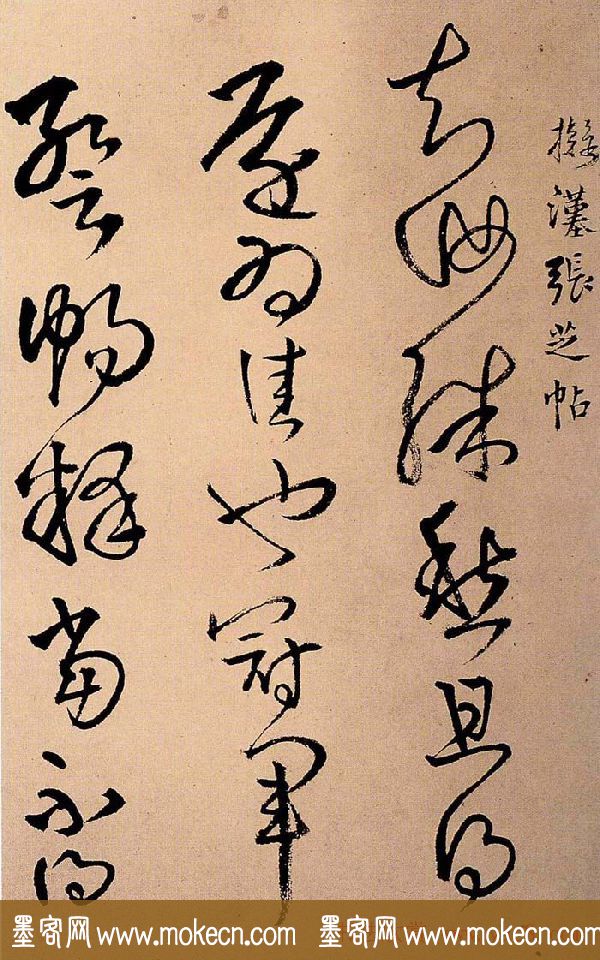 擬漢張芝帖
知汝殊愁且得
還為佳也冠軍
暫暢釋當不得
墨客网 www.mokecn.com 墨客网 www.mokecn.com